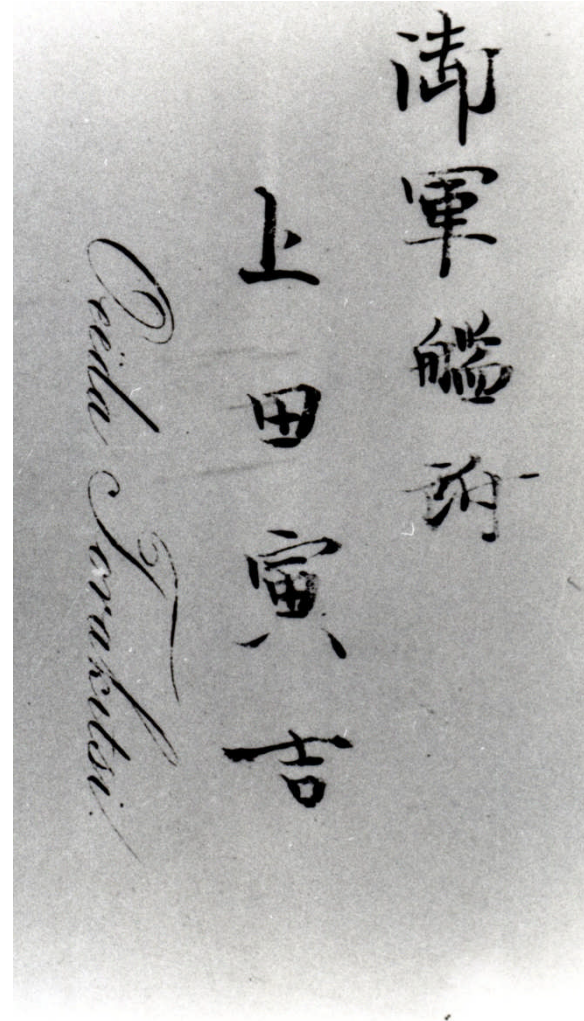 御軍艦附
上田寅吉
Oeéda Torakitsi.